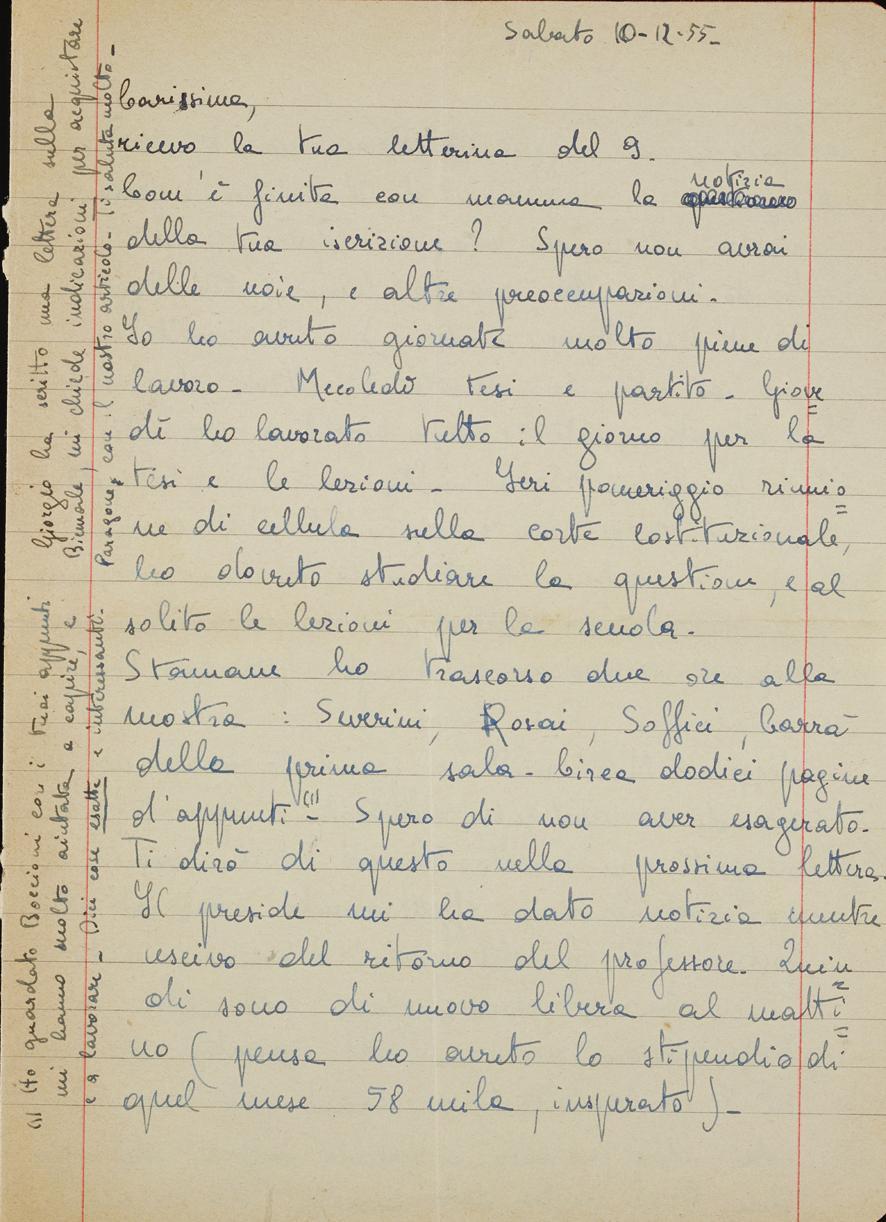 Sabato 10-12-55-
Carissima,
ricevo la tua letterina del 9.
Com'è finita con mamma la notizia
della tua iscrizione? Spero non avrai
delle noie, e altre preoccupazioni.
Io ho avuto giornate molto piene di
lavoro - Mecoledì tesi e partito - Giove
dì ho lavorato tutto il giorno per la
tesi e le lezioni - Ieri pomeriggio riunio
ne di cellula sulla corte costituzionale,
ho dovuto studiare la questione, e al
solito le lezioni per la scuola.
Stamane ho trascorso due ore alla
mostra : Severini, Rosai, Soffici, Carrà
della prima sala - Circa dodici pagine
d'appunti (1) - Spero di non aver esagerato.
Ti dirò di questo nella prossima lettera.
Il preside mi ha dato notizia mentre
uscivo del ritorno del professore. Quin
di sono di nuovo libera al matti
no (pensa ho avuto lo stipendio di
quel mese 58 mila, insperato) -
(1) Ho guardato Boccioni con i tuoi appunti
mi hanno molto aiutata a capire, e
e a lavorare - Dici cose esatte e interessanti.
Giorgio ha scritto una lettera sulla
Biennale, mi chiede indicazioni per acquistare
Paragone, con il nostro articolo - Ti saluta molto -